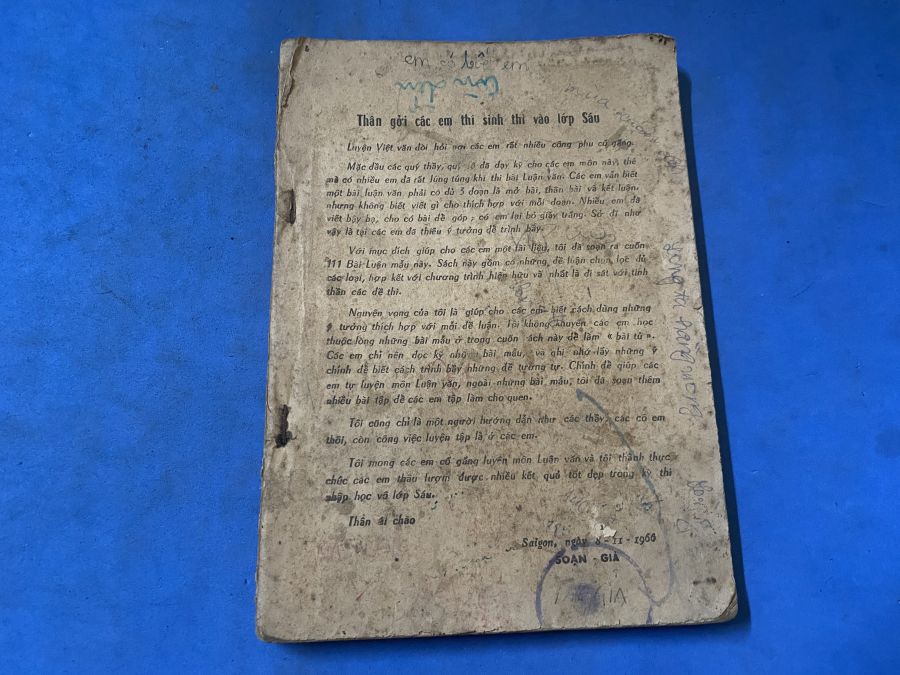 Thân gởi các em thí sinh thi vào lớp Sáu
Luyện Việt văn đòi hỏi nơi các em rất nhiều công phu cố gắng.
Mặc dầu các quý thầy, quý cô đã dạy kỹ cho các em môn này, thế
mà có nhiều em đã rất lúng túng khi thi bài Luận văn. Các em vẫn biết
một bài luận văn phải có đủ 3 đoạn là mở bài, thân bài và kết luận,
nhưng không biết viết gì cho thích hợp với mỗi đoạn. Nhiều em đã
viết bậy bạ, cho có bài để góp; có em lại bỏ giấy trắng. Sở dĩ như
vậy là tại các em đã thiếu ý tưởng để trình bầy.
Với mục đích giúp cho các em một tài liệu, tôi đã soạn ra cuốn
111 Bài Luận mẫu này. Sách này gồm có những đề luận chọn lọc đủ
các loại, hợp kết với chương trình hiện hữu và nhất là đi sát với tinh
thần các đề thi.
Nguyện vọng của tôi là giúp cho các em biết cách dùng những
ý tưởng thích hợp với mỗi đề luận. Tôi không khuyên các em học
thuộc lòng những bài mẫu ở trong cuốn sách này để làm « bài tủ ».
Các em chỉ nên đọc kỹ những bài mẫu, và ghi nhớ lấy những ý
chính để biết cách trình bầy những đề tương tự. Chính để giúp các
em tự luyện môn Luận văn, ngoài những bài mẫu, tôi đã soạn thêm
nhiều bài tập để các em tập làm cho quen.
Tôi cũng chỉ là một người hướng dẫn như các thầy, các cô em
thôi, còn công việc luyện tập là ở các em.
Tôi mong các em cố gắng luyện môn Luận văn và tôi thành thực
chúc các em thâu lượm được nhiều kết quả tốt đẹp trong kỳ thi
nhập học vô lớp Sáu.
Thân ái chào
Saigon, ngày 8-11-1966
SOẠN - GIẢ